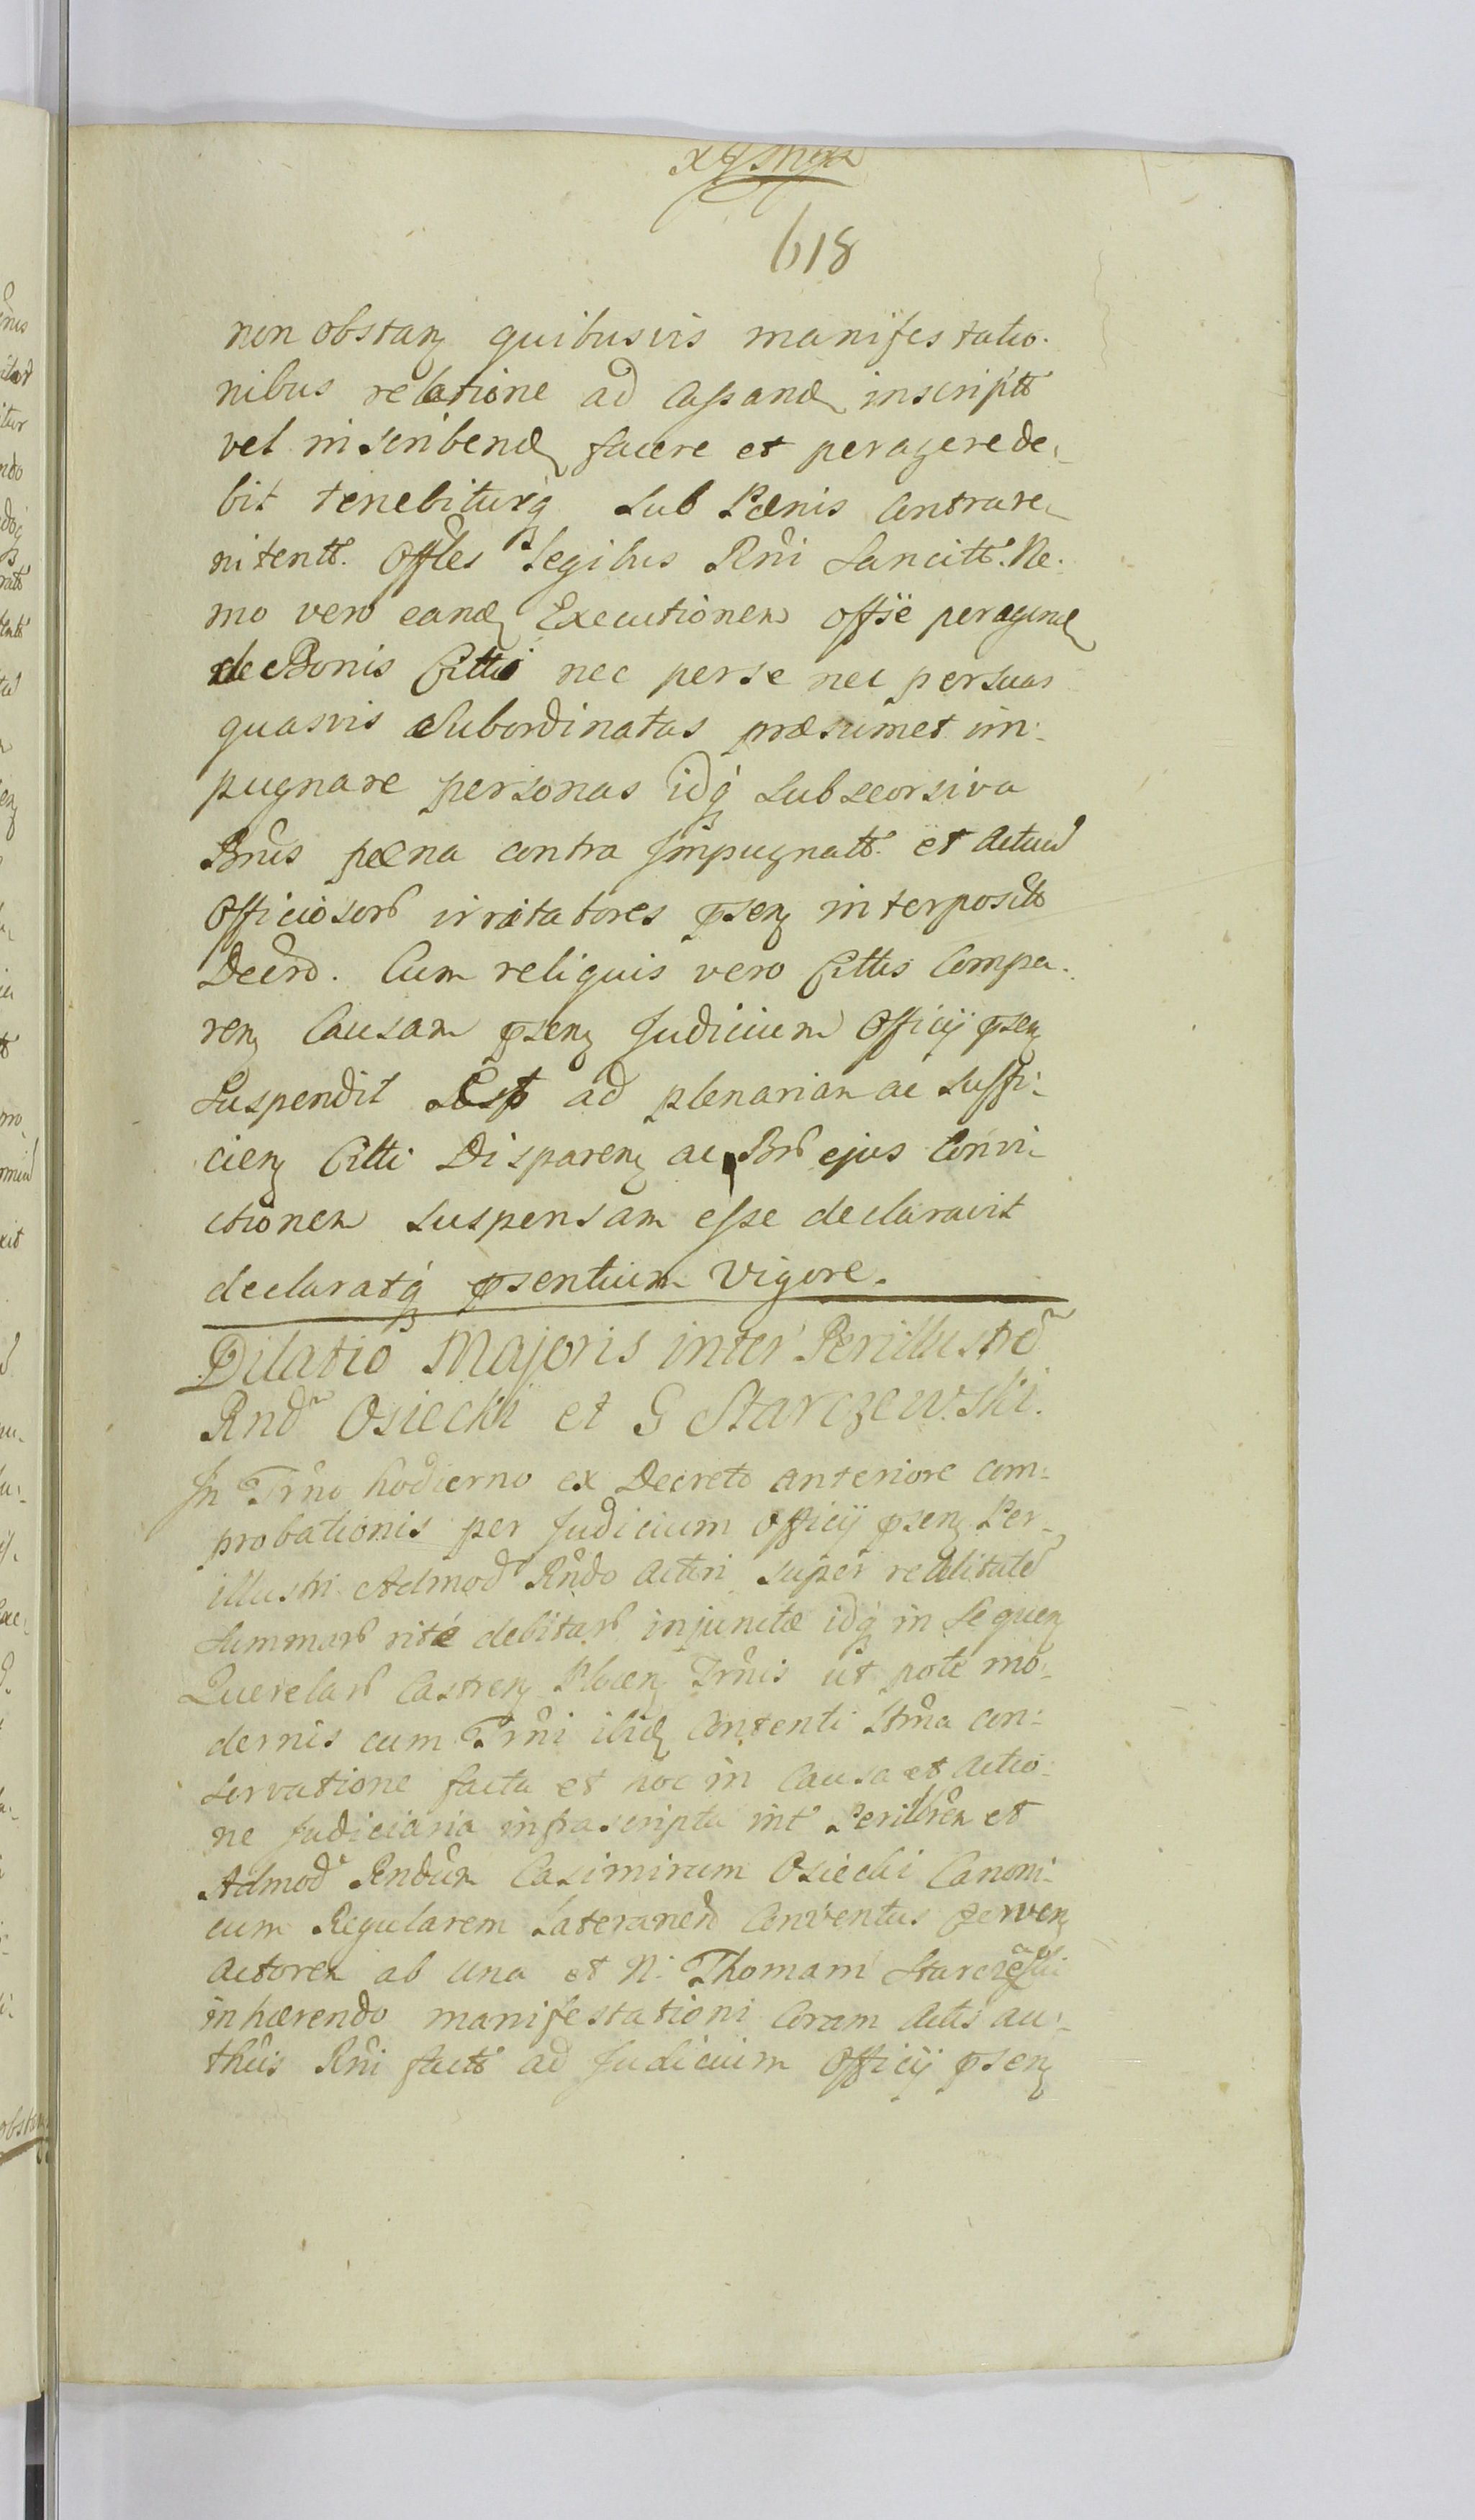 618
non obstanz quibusvis manifestatio.
nibus relatione ad Cassand inscriptt
vel inscribend facere et peragere de,
bit tenebiturq́ Sub Pœnis Contrave,
nitentt. Offles Legibus Rñi Sancitt. Ne.
mo vero eand Executionem offïe peragend
de Bonis Citti nec per se nec per suas
quasvis Subordinatas præsumet im:
pugnare personas idq́ sub seorsiva
Bnis pœna contra Jmpugnatt. et Actuū
Officiosorʒ irritatores psenz interpositt
Decrō. Cum reliquis vero Cittis Compa.
renz Causam psenz Judicium Officij psenz
Suspendit Est ad plenariam ac suffi:
cienz Citti Disparenz ac ejus Convi,
ctionem suspensam esse declaravit
declaratq́ psentium vigore.
Dilatio Majoris inter Perillustrē
Rnd̃ Osiecki et G Starczewski.
Jn Trño hodierno ex Decreto anteriore com:
probationis per Judicium Officij psenz Per,
illustri Admod Rñdo Actri super realitate
Summarʒ rité debitarʒ injunctæ idq́ in Sequenz
Querelarʒ Castrenz Plocenz Trñis ut pote mo,
dernis cum Trñi ibid Contenti Stma con:
servatione facta et hoc in Causa et Actio:
ne Judiciaria infrascripta int Perillrem et
Admod Rndum Casimirum Osiecki Canoni:
cum Regularem Lateranen Conventus Czerwenz
Actorem ab una et N. Thomam
inhærendo manifestationi Coram Actis au:
thcis Rñi factt ad Judicium Officij psenz